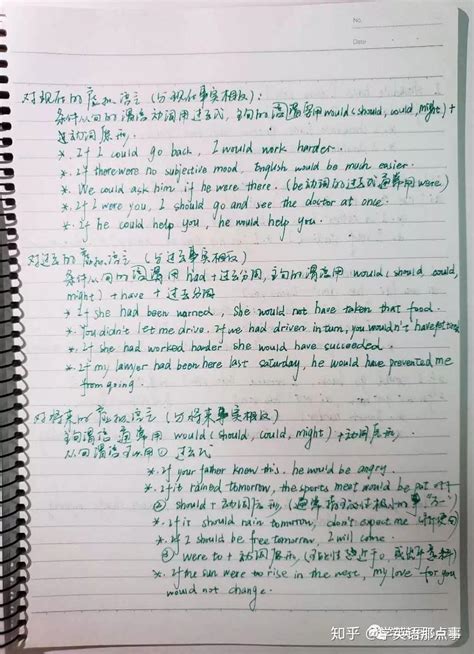 No.
Date
对现在的虚拟语气（与现在事实相反）：
条件从句的谓语动词用过去式，主句的谓语用would (should, could, might) +
动词原形.
*. If I could go back, I would work harder.
*. If there were no subjective mood, English would be much easier.
*. We could ask him if he were there. (be动词的过去式通常用were)
*. If I were you, I should go and see the doctor at once.
*. If he could help you, he would help you.
对过去的虚拟语气（与过去事实相反）
条件从句的谓语用had + 过去分词，主句的谓语用 would (should, could,
might) + have + 过去分词
* If she had been warned, she would not have taken that food.
*. You didn't let me drive. If we had driven in turn, you wouldn't have
*. If she had worked harder she would have succeeded.
*. If my lawyer had been here last saturday, he would have prevented me
from going.
对将来的虚拟语气（与将来事实相反）
主句谓语通常用 would (should, could, might) + 动词原形.
从句谓语可用① 过去式
*. If your father knew this. he would be angry.
*. If it rained tomorrow, the sports meet would be put off
② should + 动词原形
*. If it should rain tomorrow, don't expect me
*. If I should be free tomorrow, I will come.
③ were to + 动词原形
*. If the sun were to rise in the west, my love for you
would not change.
知乎 @学英语那点事